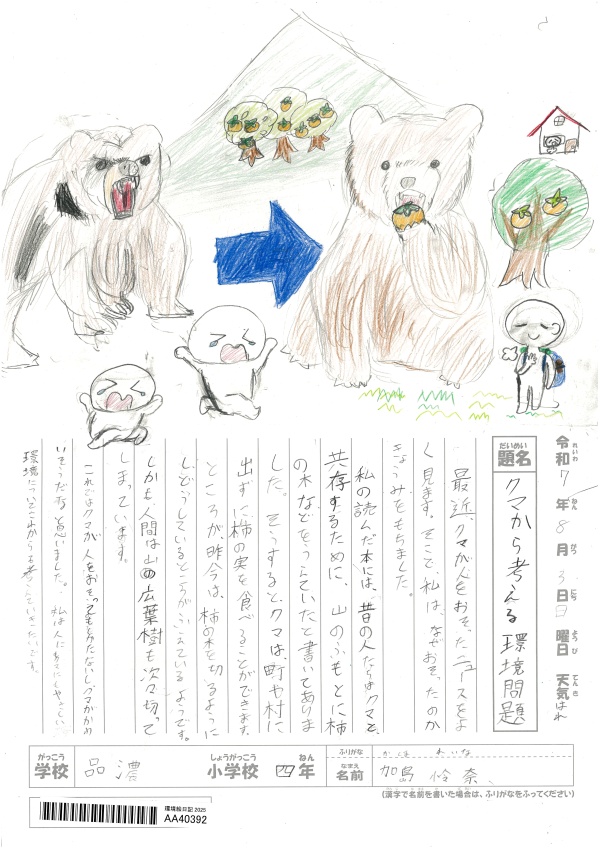 令和7年8月3日日曜日 天気はれ
れいわ ねん がつ にち ようび てんき
だいめい
題名 クマから考える環境問題
最近、クマが人をおそったニュースをよ
く見ます。そこで、私は、なぜおそったのか
きょうみをもちました。
私の読んだ本には、昔の人たちはクマと
共存するために、山のふもとに柿
の木などをうえていたと書いてありま
した。そうすると、クマは、町や村に
出ずに柿の実を食べることができます。
ところが、昨今は、柿の木を切るように
しどうしているところがふえているようです。
しかも人間は山の広葉樹も次々切って
しまっています。
これではクマが人をおそってもしかたないし、クマがかわ
いそうだなと思いました。私は人にも
環境についてこれからも考えていきたいです。
がっこう しょうがっこう ねん ふりがな かしま れいな
学校 品濃 小学校 四年 なまえ 名前 加島 怜奈
(漢字で名前を書いた場合は、ふりがなをふってください)
環境絵日記 2025
AA40392